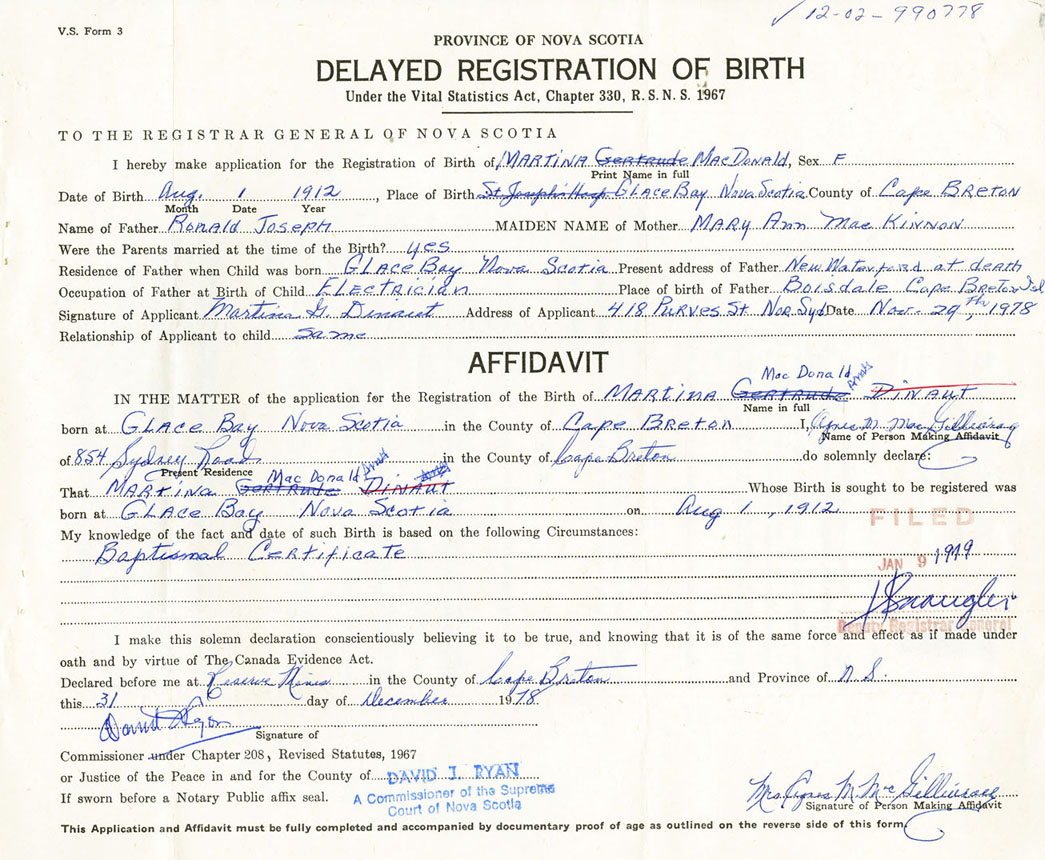 ✓ 12-02-990778
V.S. Form 3
PROVINCE OF NOVA SCOTIA
DELAYED REGISTRATION OF BIRTH
Under the Vital Statistics Act, Chapter 330, R.S.N.S. 1967
TO THE REGISTRAR GENERAL OF NOVA SCOTIA
I hereby make application for the Registration of Birth of MARTINA Gertrude MacDonald, Sex F
Print Name in full
Date of Birth Aug. 1 1912, Place of Birth St Joseph's Hosp GLACE BAY Nova Scotia County of Cape BRETON
Month Date Year
Name of Father Ronald Joseph MAIDEN NAME of Mother MARY Ann Mac Kinnon
Were the Parents married at the time of the Birth? yes
Residence of Father when Child was born GLACE BAY Nova Scotia Present address of Father New Waterford at death
Occupation of Father at Birth of Child ELectrician Place of birth of Father Boisdale Cape Breton Isl
Signature of Applicant Martina G. Dinaut Address of Applicant 418 Purves St Nor. Syd Date Nov. 29, Th 1978
Relationship of Applicant to child same
AFFIDAVIT
Mac Donald
IN THE MATTER of the application for the Registration of the Birth of MARTINA Gertrude DINAUT
Name in full
born at GLACE BAY Nova Scotia in the County of Cape Breton I, Agnes M. MacGillivray
Name of Person Making Affidavit
of 854 Sydney Road in the County of Cape Breton do solemnly declare:
Present Residence Mac Donald
That MARTINA Gertrude DINAUT Whose Birth is sought to be registered was
born at GLACE BAY Nova Scotia on Aug 1, 1912
FILED
My knowledge of the fact and date of such Birth is based on the following Circumstances:
Baptismal Certificate
JAN 9 1979
Deputy Registrar General
I make this solemn declaration conscientiously believing it to be true, and knowing that it is of the same force and effect as if made under
oath and by virtue of The Canada Evidence Act.
Declared before me at Reserve Mines in the County of Cape Breton and Province of N S.
this 31 day of December 1978
David Ryan
Signature of
Commissioner under Chapter 208, Revised Statutes, 1967
or Justice of the Peace in and for the County of DAVID J. RYAN
If sworn before a Notary Public affix seal. A Commissioner of the Supreme
Court of Nova Scotia
Mrs Agnes M McGillivray
Signature of Person Making Affidavit
This Application and Affidavit must be fully completed and accompanied by documentary proof of age as outlined on the reverse side of this form.